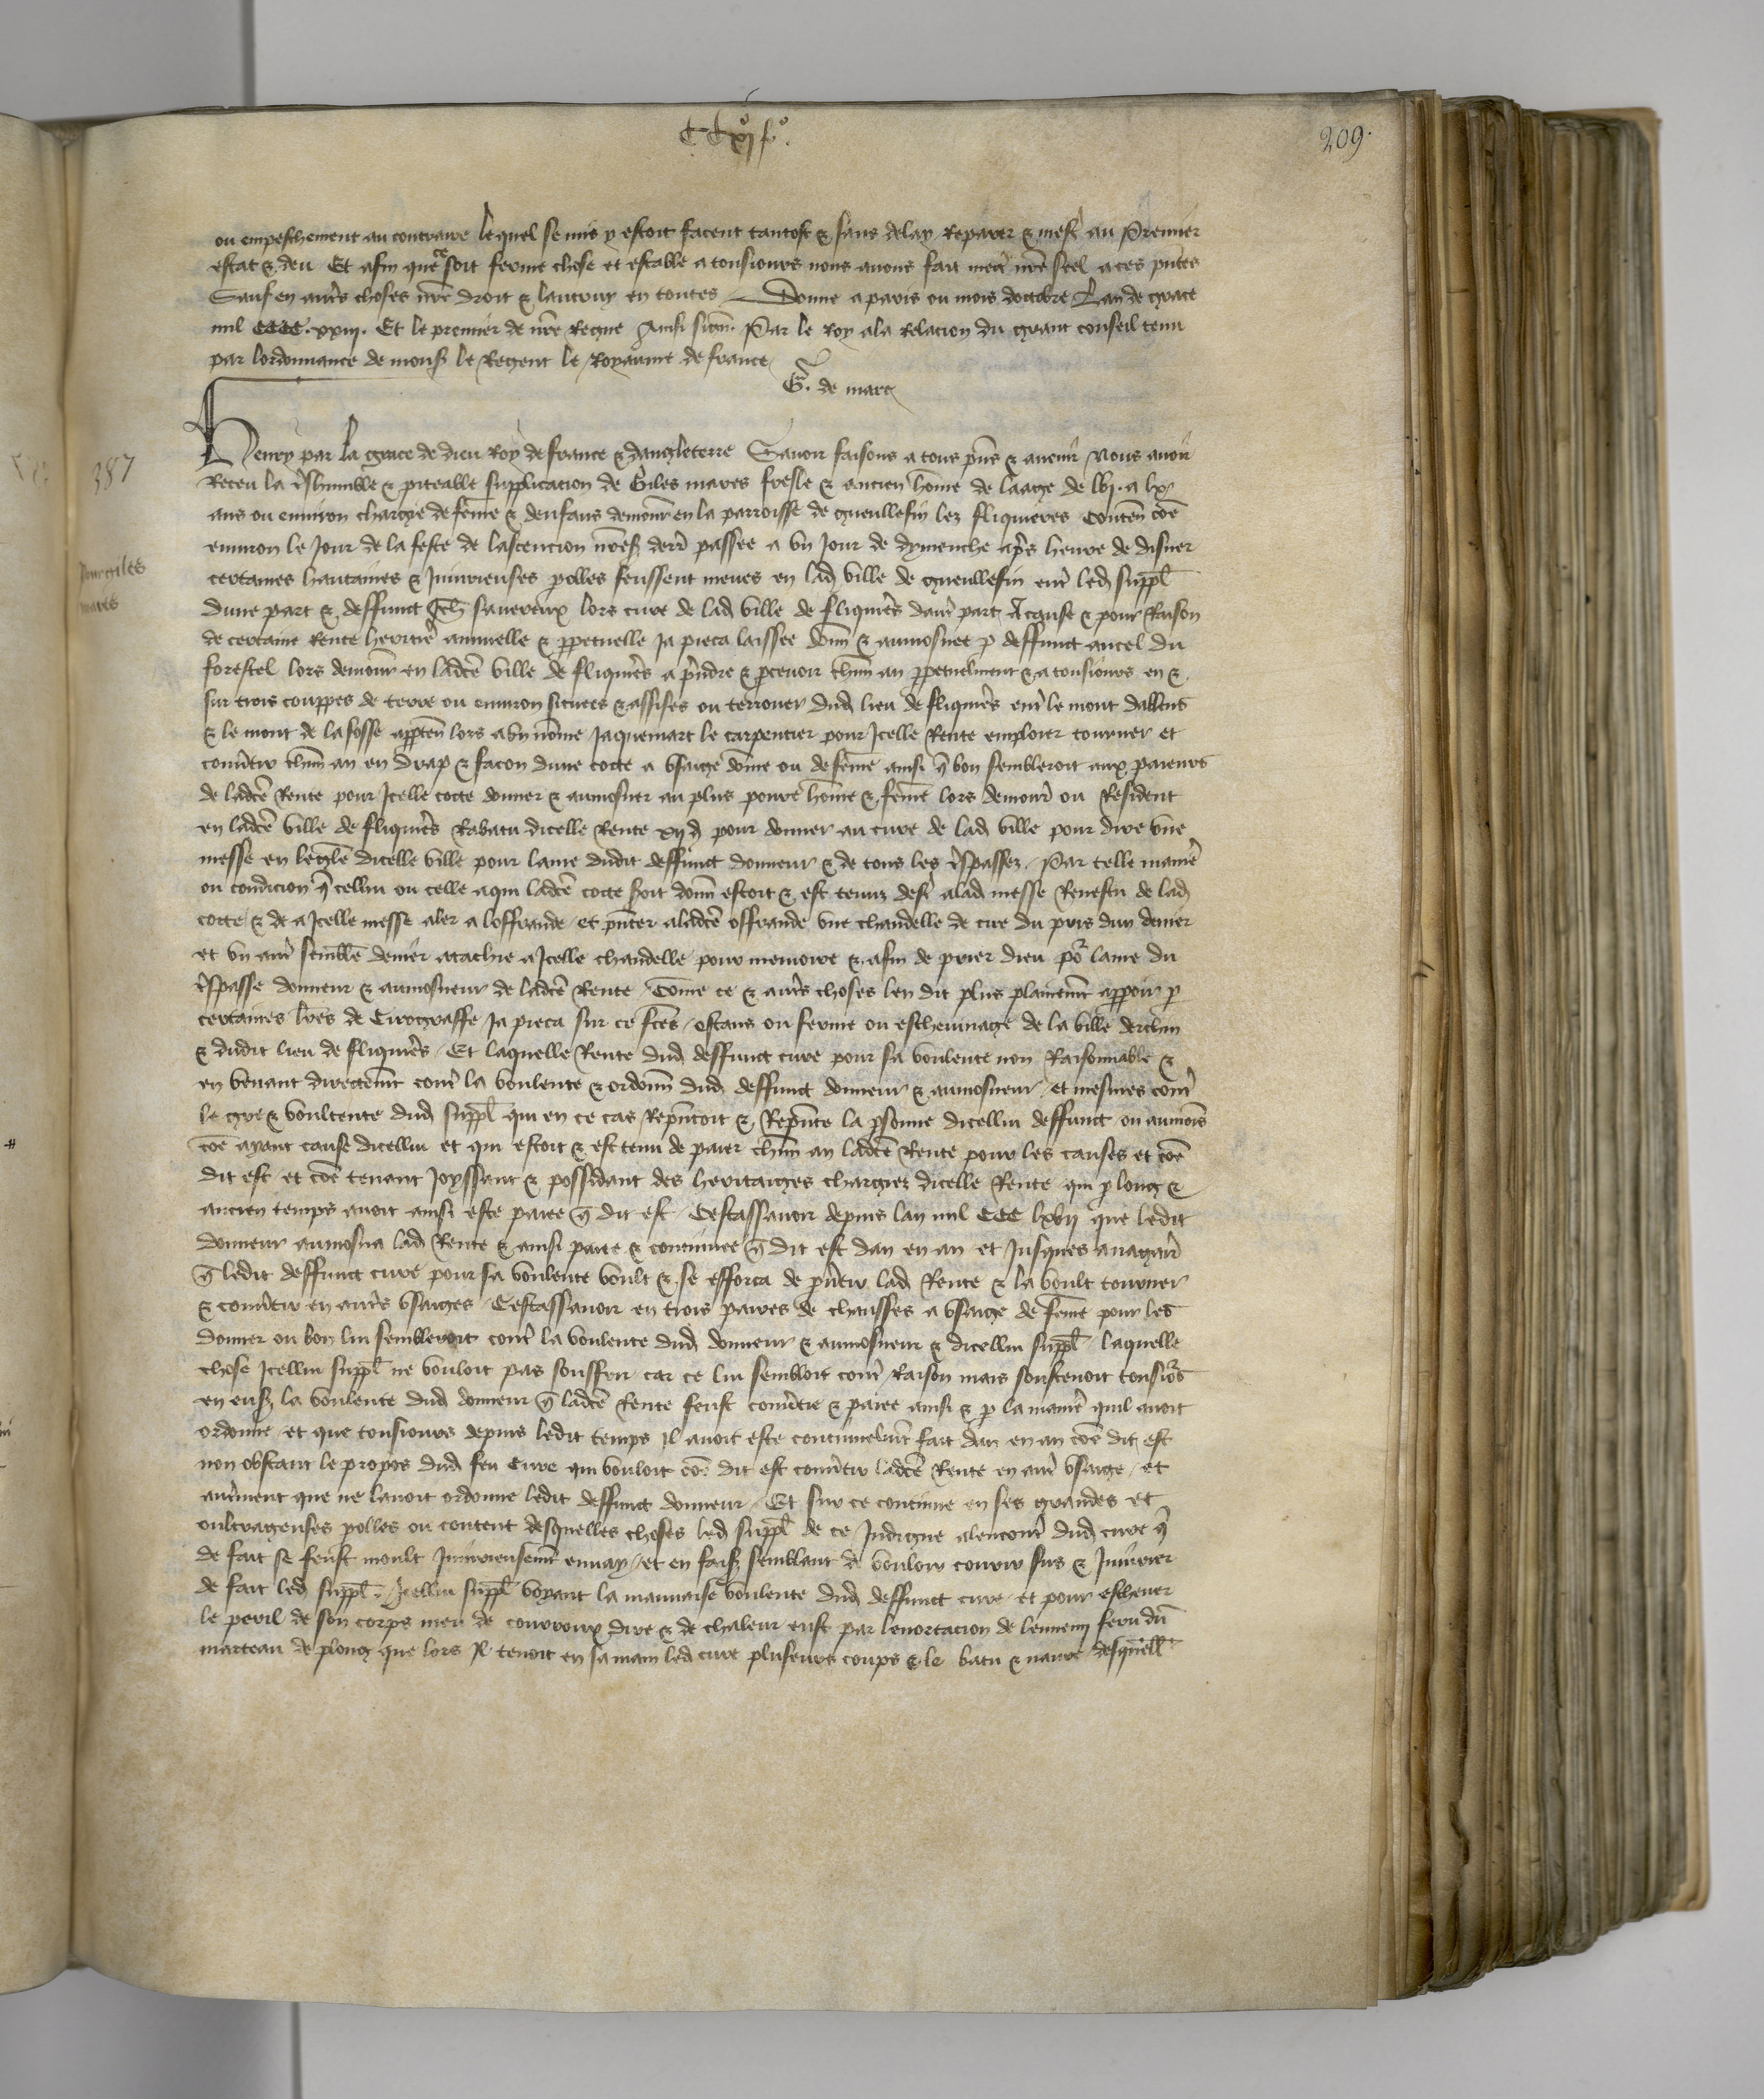 CCxj fo.
209.
ou empeschement au contraire lequel se mis y estoit facent tantost & sans delay reparer & mett' au premier
estat & deu Et afin que ce soit ferme chose et estable a tousiours nous auons fait mett' nr̄e seel a ces pn̄tes
Sauf en aut's choses nr̄e droit & lautruy en toutes Donne a paris ou mois doctobre Lan de grace
mil CCCC. xxiij. Et le premier de nr̄e Regne Ainsi sign̄. Par le Roy a la Relacion du grant conseil tenu
par lordonnance de mons' le Regent le Royaume de france
G. de marc
Henry par la grace de dieu Roy de france & dangleterre Sauoir faisons a tous pn̄s & auenir Nous auoir
Receu la t'shumble & piteable supplicacion de Giles mares fresle & ancien hōme de laage de lvj. a lx
ans ou enuiron chargie de fēme & denfans demour' en la parroisse de gueullesin lez fliquieres Conten̄ cōe
enuiron le Jour de la feste de lascencion nr̄es' derr' passee a vn Jour de dymenche ap's heure de disner
certaines hautaines & Iniurieuses polles feussent meues en lad' ville de gueullesin ent' led' suppl̄
dune part & deffunct Jeh' sauereux lors cure de lad' ville de fliquier's daut' part A cause & pour Raison
de certaine Rente heritier' annuelle & ppetuelle Ja pieca laissee donn̄ & aumosnee p deffunct ancel du
forestel lors demour' en ladc̄e ville de fliquier's a p'ndre & pceuoir chūn an ppetuelment & a tousiours en &
sur trois couppes de terre ou enuiron situees & assises ou terrouer dud' lieu de fliquier's ent' le mont dallens
& le mont de la fosse apparten̄ lors a vn nōme Jaquemart le carpentier pour Icelle Rente emploier tourner et
conu'tir chūn an en drap & facon dune cotte a vsaige dōme ou de fēme ainsi q̄ bon sembleroit aux paieurs
de ladc̄e Rente pour Icelle cotte donner & aumosner au plus poure hōme & fēme lors demour' ou Resident
en ladc̄e ville de fliquier's Rabatu dicelle Rente xij d' pour donner au cure de lad' ville pour dire vne
messe en leglē dicelle ville pour lame dudit deffunct donneur & de tous les t'spassez Par telle manier'
ou condicion q̄ cellui ou celle a qui ladc̄e cotte soit donn̄ estoit & est tenuz dest' a lad' messe Reuestu de lad'
cotte & de a Icelle messe aler a loffrande et pn̄ter a ladc̄e offrande vne chandelle de cire du pris dun denier
et vn aut' semblē denier atachie a Icelle chandelle pour memoire & afin de prier dieu po' lame du
t'spasse donneur & aumosneur de ladc̄e Rente Cōme ce & aut's choses len dit plus plainem̄t apparoir p
certaines lr̄es de Cirograffe Ja pieca sur ce fc̄es estans ou ferme ou escheuinage de la ville derchin
& dudit lieu de fliquier's Et laquelle Rente dud' deffunct cure pour sa voulente non Raisonnable &
en venant directem̄t cont' la voulente & ordonn̄ dud' deffunct donneur & aumosneur et mesmes cont'
le gre & voultente dud' suppl̄ qui en ce cas Repn̄toit & Repn̄te la psonne dicellui deffunct ou aumoīs
cōe ayant cause dicellui et qui estoit & est tenu de paier chūn an ladc̄e Rente pour les causes et cōe
dit est et cōe tenant Joyssant & possidant des heritaiges chargiez dicelle Rente qui p long &
ancien temps auoit ainsi este paiee q̄ dit est Cestassauoir depuis lan mil CCC lxvij que ledit
donneur aumosna lad' Rente & ainsi paiee & continuee q̄ dit est dan en an et Jusques a nagair'
q̄ ledit deffunct cure pour sa voulente voult & se efforca de pu'tir lad' Rente & la voult tourner
& conu'tir en aut's vsaiges Cestassauoir en trois paires de chausses a vsaige de fēme pour les
donner ou bon lui sembleroit cont' la voulente dud' donneur & aumosneur & dicellui suppl̄ laquelle
chose Icellui suppl̄ ne vouloit pas souffrir car ce lui sembloit cont' Raison mais soustenoit tousio's
en ens' la voulente dud' donneur q̄ ladc̄e Rente feust conu'tie & paiee ainsi & p la manier' quil auoit
ordonne et que tousiours depuis ledit temps Il auoit este continuelm̄t fait dan en an cōe dit est
non obstant le propos dud' feu Cure qui vouloit cōe dit est conu'tir ladc̄e Rente en aut' vsaige et
aut'ment que ne lauoit ordonne ledit deffunct donneur Et sur ce continue en ses grandes et
oultrageuses polles ou content desquelles choses led' suppl̄ de ce Indigne alencont' dud' cure q̄
de fait se feust moult Iniurieusem̄t enuay et en fais' semblant de vouloir courir sus & Iniurier
de fait led' suppl̄. Icellui suppl̄ voyant la mauuaise voulente dud' deffunct cure et pour escheuer
le peril de son corps meu de courroux dire & de chaleur eust par lenortacion de lennemi feru dū
marteau de plong que lors Il tenoit en sa main led' cure pluseurs coups & le batu & naure desquell'
387
Pour giles
mares